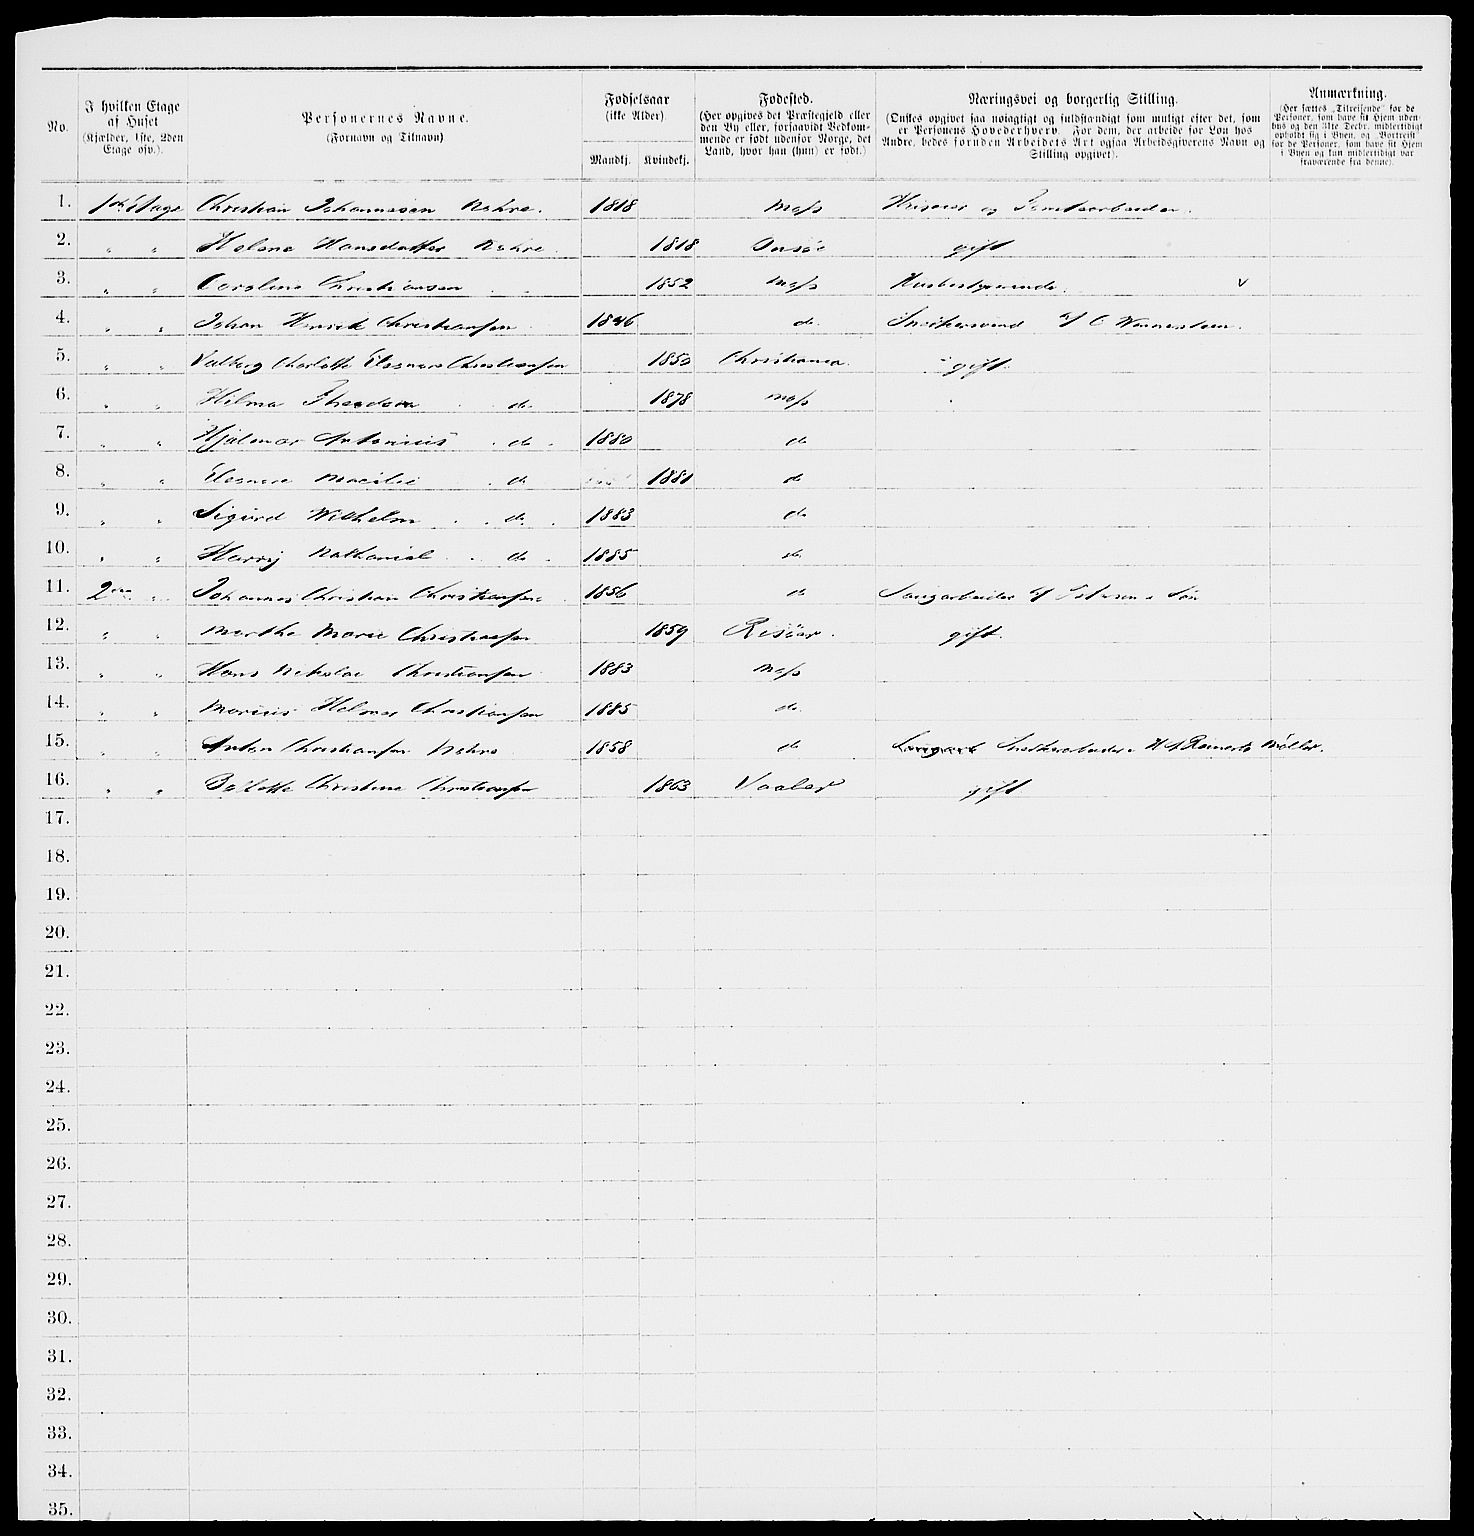 No.
I hvilken Etage af Huset
(Kjælder, 1ste, 2den Etage osv.).
Personernes Navne.
(Fornavn og Tilnavn)
Fødselsaar
(ikke Alder).
Mandkj. Kvindekj.
Fødested.
(Her opgives det Præstegjeld eller
den By eller, forsaavidt Vedkom-
mende er født udenfor Norge, det
Land, hvor han (hun) er født.)
Næringsvei og borgerlig Stilling.
(Ønskes opgivet saa nøiagtigt og fuldstændigt som muligt efter det, som
er Personens Hovederhverv. For dem, der arbeide for Løn hos
Andre, bedes foruden Arbeidets Art ogsaa Arbeidsgiverens Navn og
Stilling opgivet).
Anmærkning.
(Her sættes „Tilreisende" for de
Personer, som have sit Hjem uden-
bys og den 31te Decbr. midlertidigt
opholdt sig i Byen, og „Bortreist"
for de Personer, som have sit Hjem
i Byen og kun midlertidigt var
fraværende fra denne).
1. 1ste Etage Christian Johannesen 1818 Moss Huseier og
2. " " Helene Hansdatter 1818 Onsøe gift
3. " " Caroline Christiansen 1852 Moss Husbestyrerinde v
4. " " Johan Henrik Christiansen 1846 do. Snedkersvend
5. " " Valborg Charlotte Eleonora Christiansen 1850 Christiania gift.
6. " " Hilma Theodora do. 1878 Moss
7. " " Hjalmar Antonius do. 1880 do
8. " " do 1881 do
9. " " Sigurd Wilhelm do. 1883 do
10. " " Harry Nathaniel do 1885 do
11. 2den " Johannes Christian Christiansen 1856 do Saugarbeider
12. " " Marthe Marie Christiansen 1859 Risøer. gift.
13. " " Hans Nikolai Christiansen 1883 Moss
14. " " Marius Helmer Christiansen 1885 do.
15. " " Anton Christiansen 1858 do
16. " " Christine Christiansen 1863 Vaaler gift
17.
18.
19.
20.
21.
22.
23.
24.
25.
26.
27.
28.
29.
30.
31.
32.
33.
34.
35.